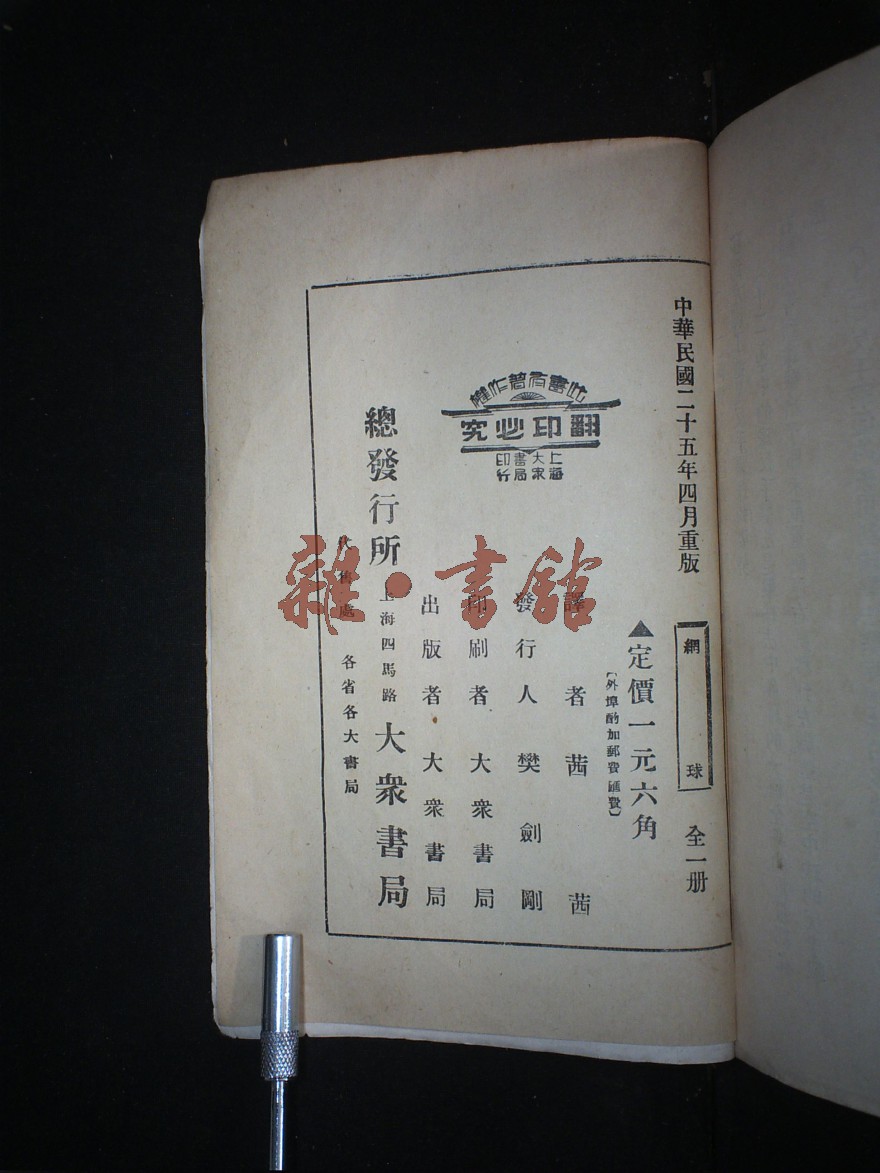 中華民國二十五年四月重版
網球
全一册
▲定價一元六角
〔外埠酌加郵費匯費〕
譯者茜茜
發行人樊劍剛
印刷者大衆書局
出版者大衆書局
總發行所上海四馬路大衆書局
代售處各省各大書局
此書有著作權
翻印必究
上海大衆書局印行
雜·書館